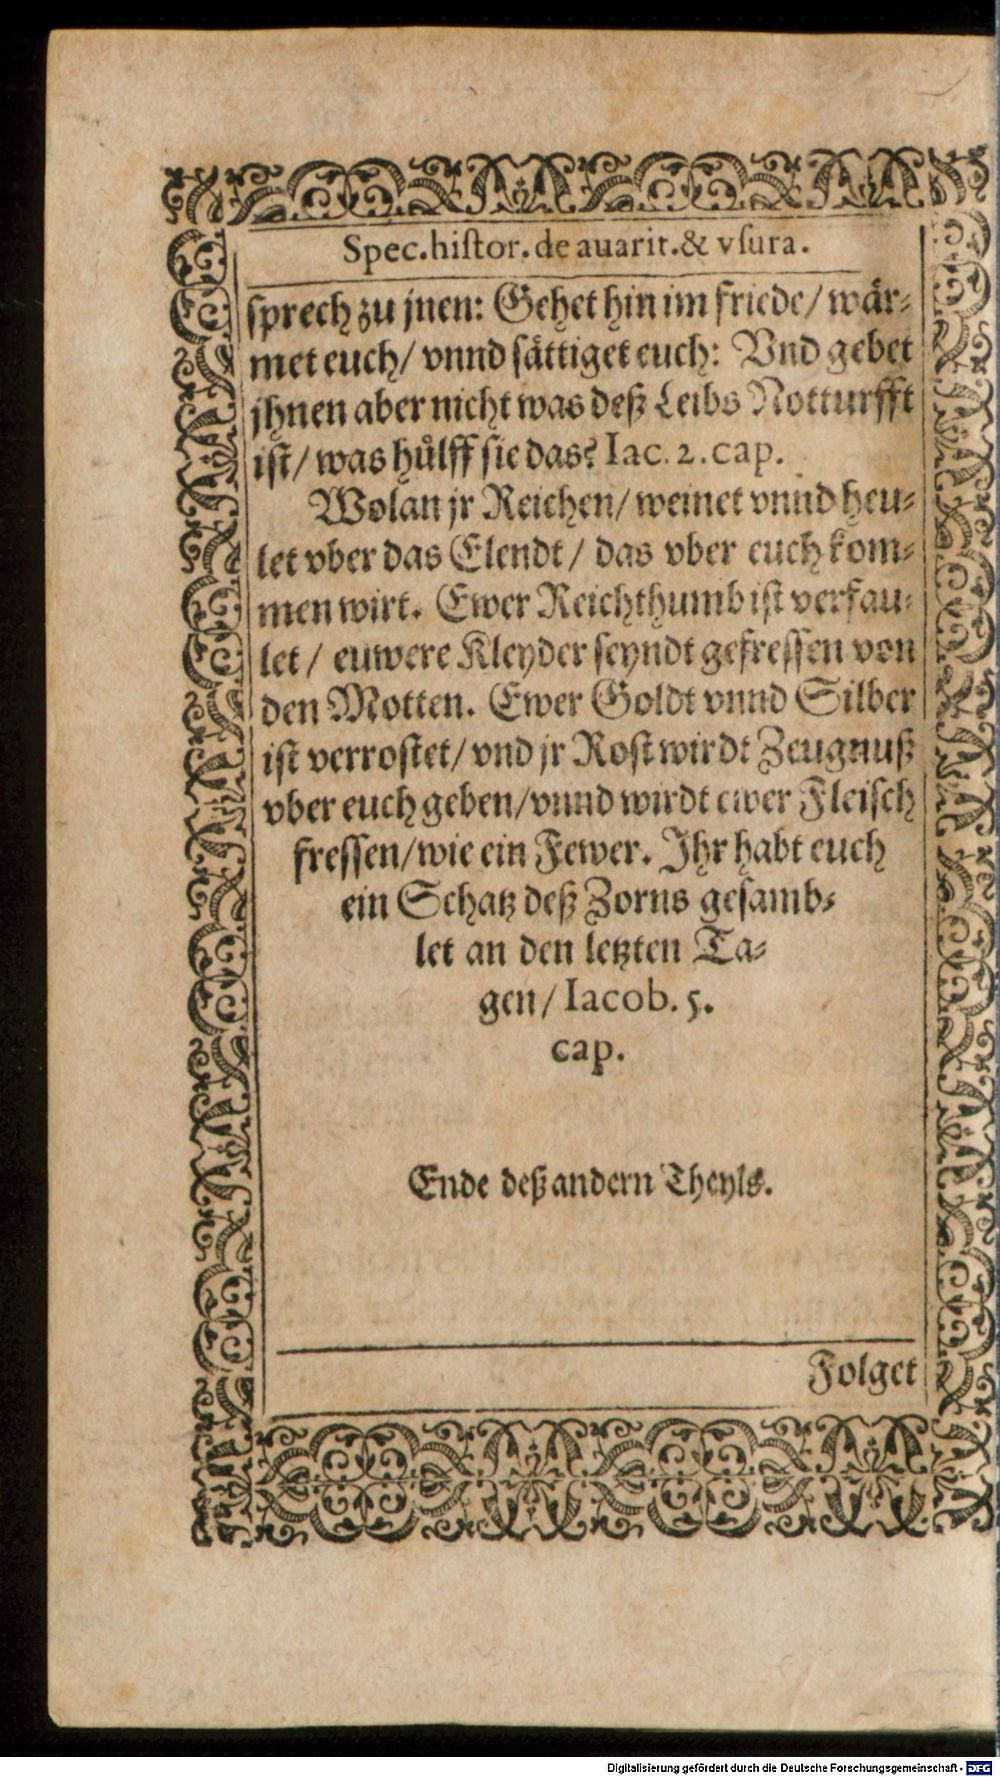 Spec. histor. de auarit. & vsura.
sprech zu jnen: Gehet hin im friede/ wär⸗
met euch/ vnnd sättiget euch: Vnd gebet
jhnen aber nicht was deß Leibs Notturfft
ist/ was hůlff sie das? Iac. 2. cap.
Wolan jr Reichen/ weinet vnnd heu⸗
let vber das Elendt/ das vber euch kom⸗
men wirt. Ewer Reichthumb ist verfau⸗
let/ euwere Kleyder seyndt gefressen von
den Motten. Ewer Goldt vnnd Silber
ist verrostet/ vnd jr Rost wirdt Zeugnuß
vber euch geben/ vnnd wirdt ewer Fleisch
fressen/ wie ein Fewer. Ihr habt euch
ein Schatz deß Zorns gesamb⸗
let an den letzten Ta⸗
gen/ Iacob. 5.
cap.
Ende deß andern Theyls.
Folget
Digitalisierung gefördert durch die Deutsche Forschungsgemeinschaft - DFG